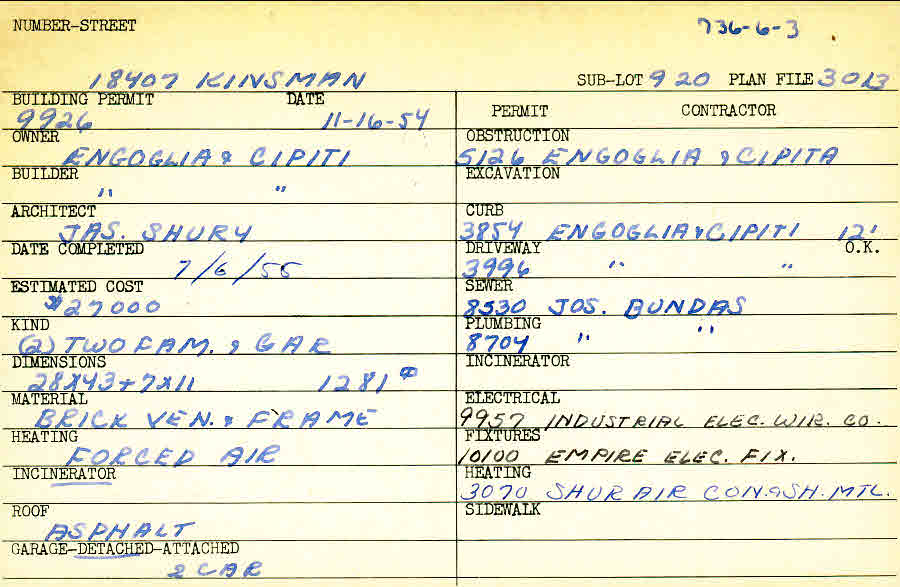 NUMBER-STREET 736-6-3
18407 KINSMAN SUB-LOT 920 PLAN FILE 3013
BUILDING PERMIT DATE
9926 11-16-54
OWNER
ENGOGLIA & CIPITI
BUILDER
" "
ARCHITECT
JAS. SHURY
DATE COMPLETED
7/6/55
ESTIMATED COST
$27000
KIND
(2) TWO FAM. & GAR
DIMENSIONS
28X43+7X11 1281
MATERIAL
BRICK VEN. & FRAME
HEATING
FORCED AIR
INCINERATOR
ROOF
ASPHALT
GARAGE-DETACHED-ATTACHED
2 CAR
PERMIT CONTRACTOR
OBSTRUCTION
5126 ENGOGLIA & CIPITA
EXCAVATION
CURB
3854 ENGOGLIA & CIPITI 12'
DRIVEWAY O.K.
3996 " "
SEWER
8530 JOS. BUNDAS
PLUMBING
8704 " "
INCINERATOR
ELECTRICAL
9957 INDUSTRIAL ELEC. WIR. CO.
FIXTURES
10100 EMPIRE ELEC. FIX.
HEATING
3070 SHUR AIR CON. & SH. MTL.
SIDEWALK